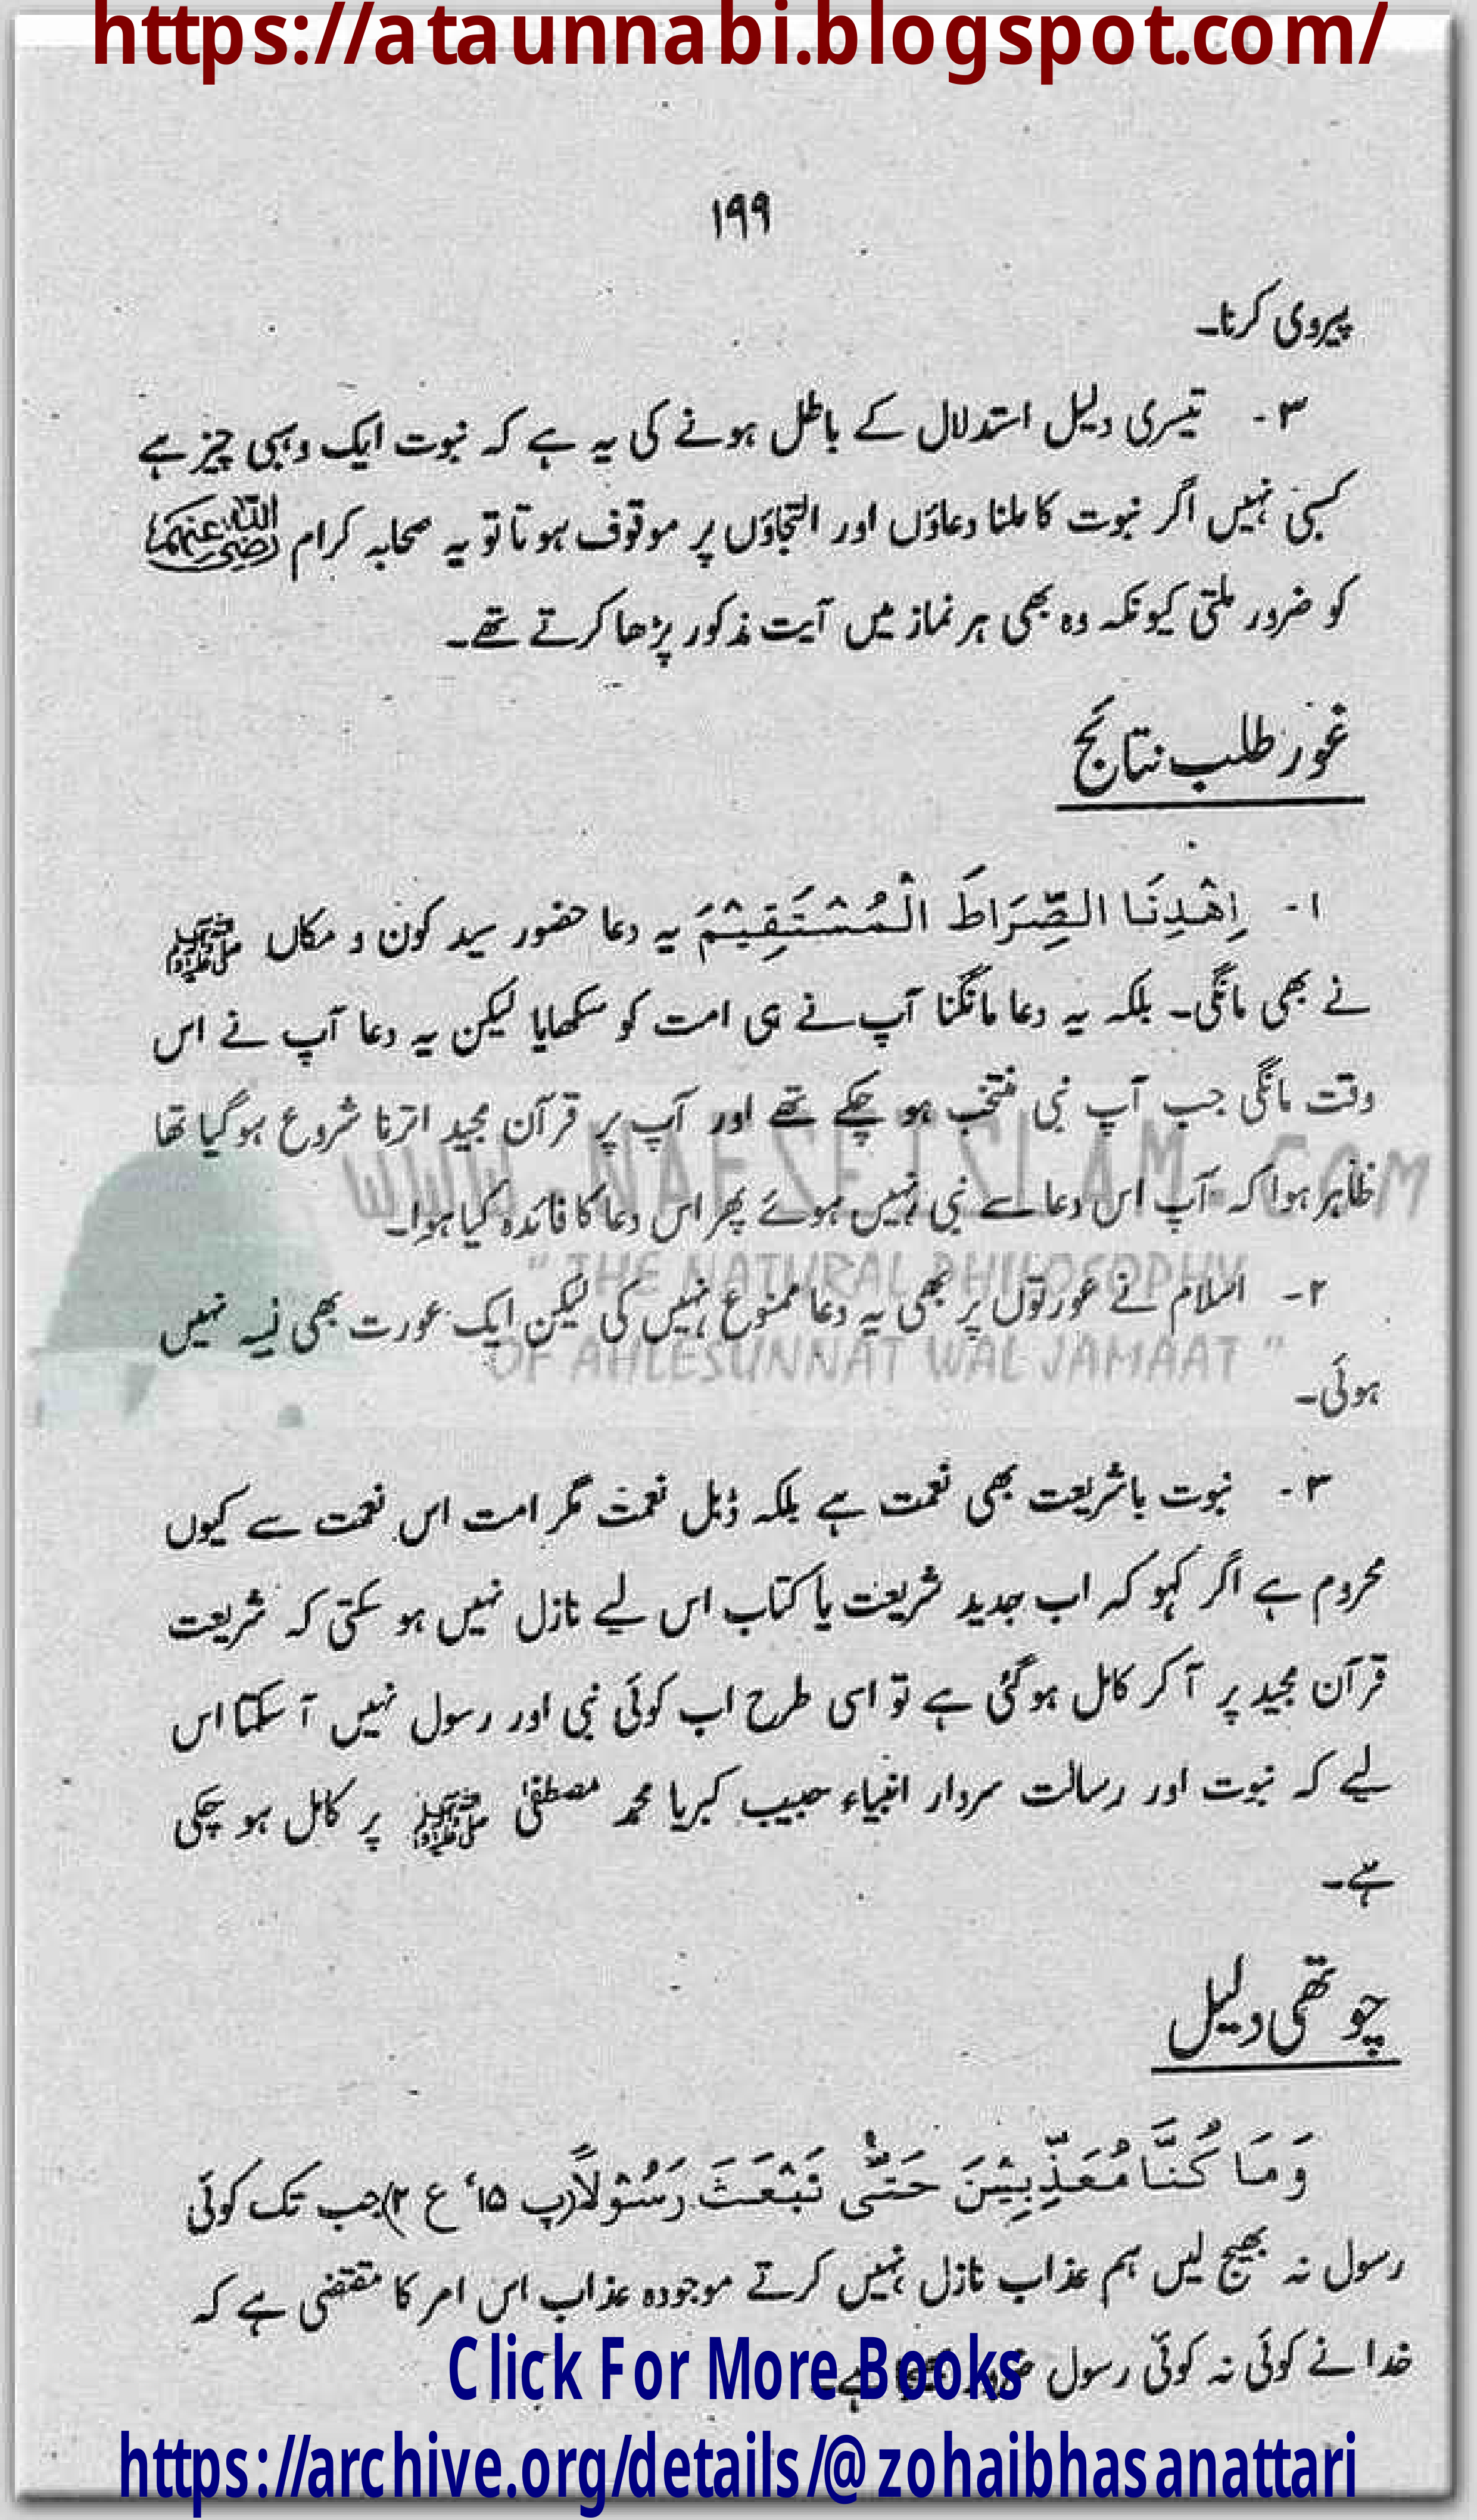 https://ataunnabi.blogspot.com/
۱۹۹
پیروی کرنا۔
۳- تیسری دلیل استدلال کے باطل ہونے کی یہ ہے کہ نبوت ایک وہبی چیز ہے
کسبی نہیں اگر نبوت کا ملنا دعاؤں اور التجاؤں پر موقوف ہوتا تو یہ صحابہ کرام رضی اللہ عنہم
کو ضرور ملتی کیونکہ وہ بھی ہر نماز میں آیت مذکور پڑھا کرتے تھے۔
غور طلب نتائج
۱- اِهْدِنَا الصِّرَاطَ الْمُسْتَقِيْمَ یہ دعا حضور سید کون و مکاں ﷺ
نے بھی مانگی۔ بلکہ یہ دعا مانگنا آپ نے ہی امت کو سکھایا لیکن یہ دعا آپ نے اس
وقت مانگی جب آپ نبی منتخب ہو چکے تھے اور آپ پر قرآن مجید اترنا شروع ہو گیا تھا
WWW.NAFSEISLAM.COM
ظاہر ہوا کہ آپ اس دعا سے نبی نہیں ہوئے پھر اس دعا کا فائدہ کیا ہوا۔
"THE NATURAL PHILOSOPHY
۲- اسلام نے عورتوں پر بھی یہ دعا ممنوع نہیں کی لیکن ایک عورت بھی نبیہ نہیں
OF AHLESUNNAT WAL JAMAAT"
ہوئی۔
۳- نبوت باشریعت بھی نعمت ہے بلکہ ڈبل نعمت مگر امت اس نعمت سے کیوں
محروم ہے اگر کہو کہ اب جدید شریعت یا کتاب اس لیے نازل نہیں ہو سکتی کہ شریعت
قرآن مجید پر آ کر کامل ہو گئی ہے تو اسی طرح اب کوئی نبی اور رسول نہیں آ سکتا اس
لیے کہ نبوت اور رسالت سردار انبیاء حبیب کبریا محمد مصطفیٰ ﷺ پر کامل ہو چکی
ہے۔
چوتھی دلیل
وَمَا كُنَّا مُعَذِّبِيْنَ حَتّٰى نَبْعَثَ رَسُوْلًا (پ ۱۵‘ ع ۲) جب تک کوئی
رسول نہ بھیج لیں ہم عذاب نازل نہیں کرتے موجودہ عذاب اس امر کا مقتضی ہے کہ
خدا نے کوئی نہ کوئی رسول ہے۔
Click For More Books
https://archive.org/details/@zohaibhasanattari